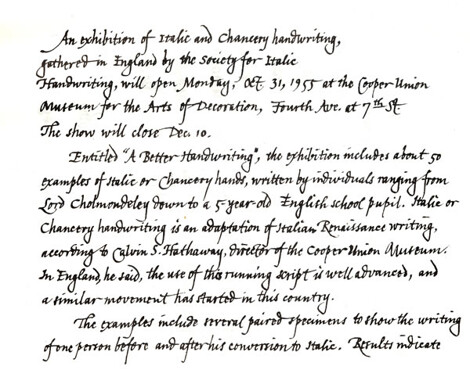 An exhibition of Italic and Chancery handwriting,
gathered in England by the Society for Italic
Handwriting, will open Monday, Oct. 31, 1955 at the Cooper Union
Museum for the Arts of Decoration, Fourth Ave. at 7th St.
The show will close Dec. 10.
Entitled "A Better Handwriting", the exhibition includes about 50
examples of Italic or Chancery hands, written by individuals ranging from
Lord Cholmondeley down to a 5-year old English school pupil. Italic or
Chancery handwriting is an adaptation of Italian Renaissance writing,
according to Calvin S. Hathaway, director of the Cooper Union Museum.
In England, he said, the use of this running script is well advanced, and
a similar movement has started in this country.
The examples include several paired specimens to show the writing
of one person before and after his conversion to Italic. Results indicate